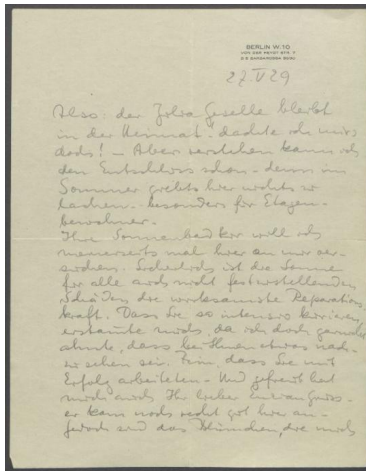 BERLIN W.10
VON DER HEYDT STR. 7
27.V 29
Also: der Geselle bleibt
in der Heimat - dachte ich mirs
doch! - Aber verstehen kann ich
den Entschluss schon - denn im
Sommer hier nichts zu
lachen - besonders für Etagen-
bewohner.
Ihre Sonnenbadkur will ich
meinerseits mal hier an mir ver-
suchen. Sicherlich ist die Sonne
für alle auch nicht festzustellenden
Schäden die wirksamste Reparations
kraft. Dass Sie so intensiv kurieren,
erstaunte mich, da ich doch garnicht
ahnte, dass bei Ihnen etwas nach-
zusehen sei. Fein, dass Sie mit
Erfolg arbeiteten - Und gefreut hat
mich auch Ihr lieber
er kam noch recht gut hier an -
sind das Blümchen, die mich